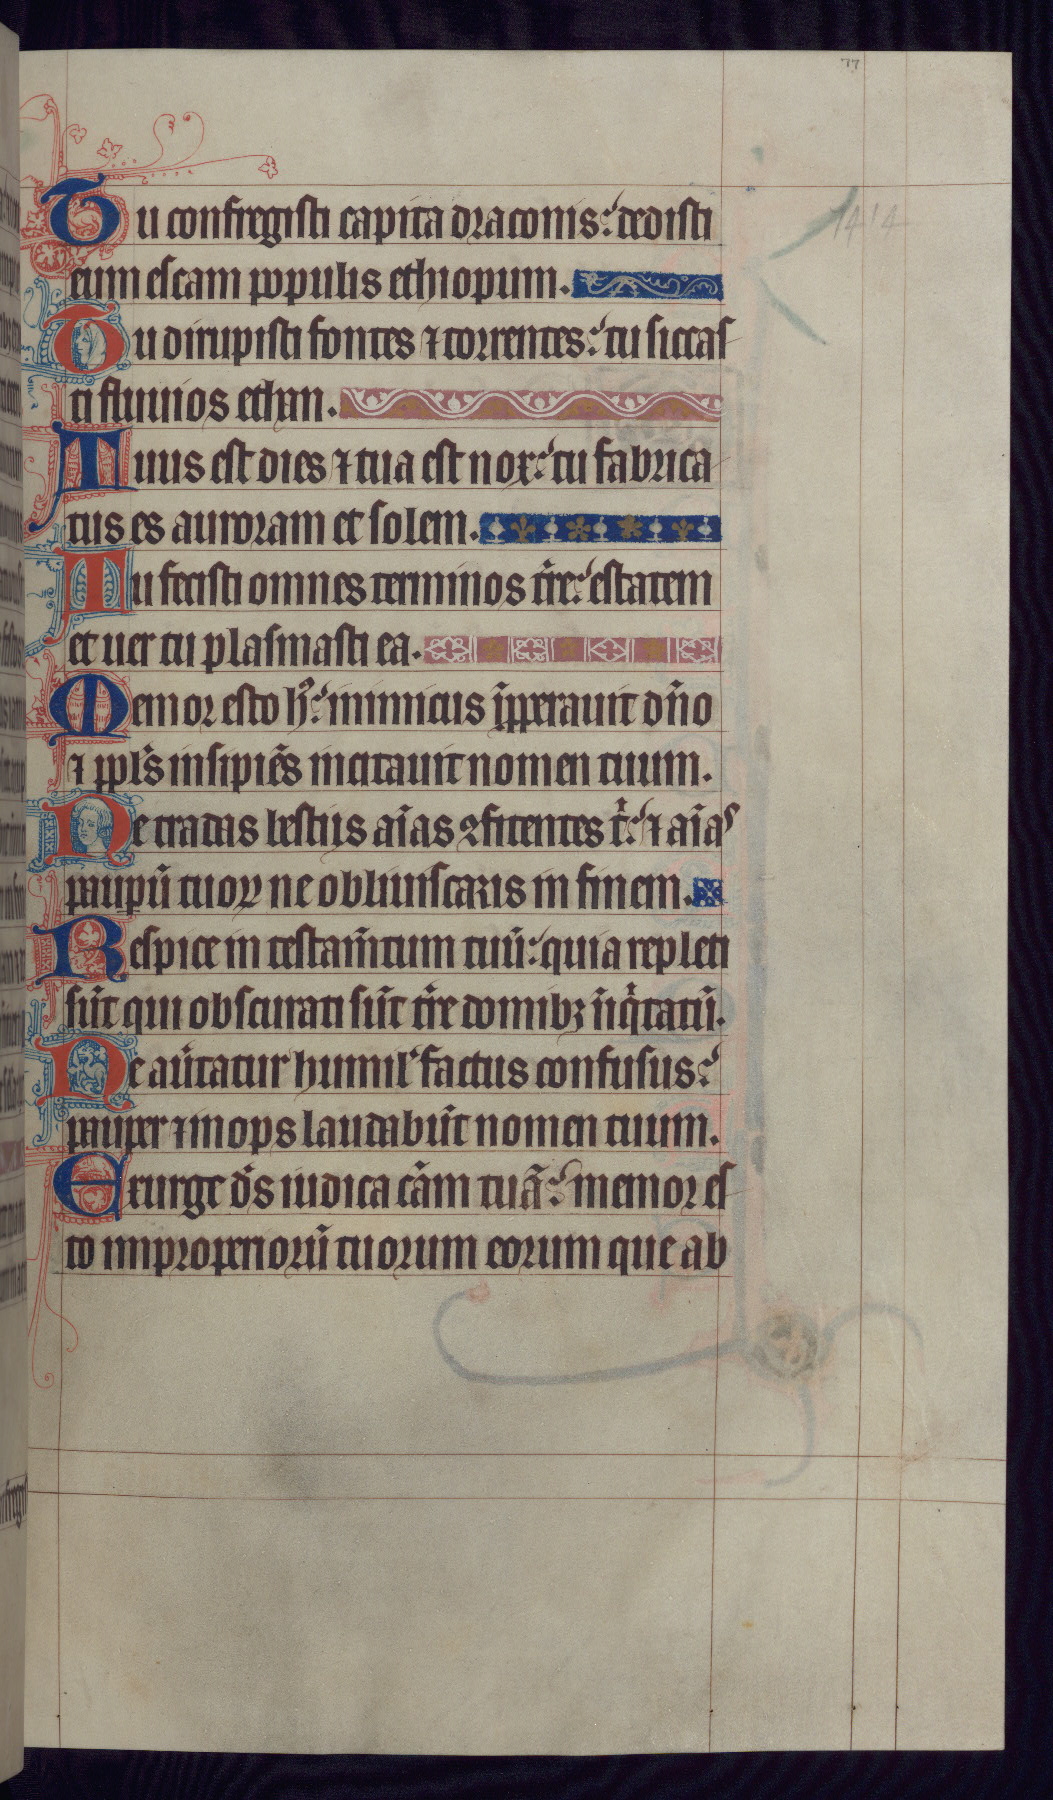 77
Tu confregisti capita draconis: dedisti
eum escam populis ethiopum.
Tu dirupisti fontes ⁊ torrentes: tu siccas
ti fluuios ethan.
Tuus est dies ⁊ tua est nox: tu fabrica
tus es auroram et solem.
Tu fecisti omnes terminos t̄re: estatem
et uer tu plasmasti ea.
Memor esto hꝰ: inimicus īpperauit dn̄o
⁊ ppl̄s insipiēs incitauit nomen tuum.
Ne tradas bestijs aīas ꝯfitentes t̄: ⁊ aīas
paupū tuoꝝ ne obliuiscaris in finem.
Respice in testam̄tum tuū: quia repleti
sūt qui obscurati sūt t̄re domibꝫ iniq̄tatū.
Ne aūtatur humil' factus confusus:
pauper ⁊ inops laudabūt nomen tuum.
Exurge d̄s iudica cām tuā: memor es
to improperiorū tuorum eorum que ab